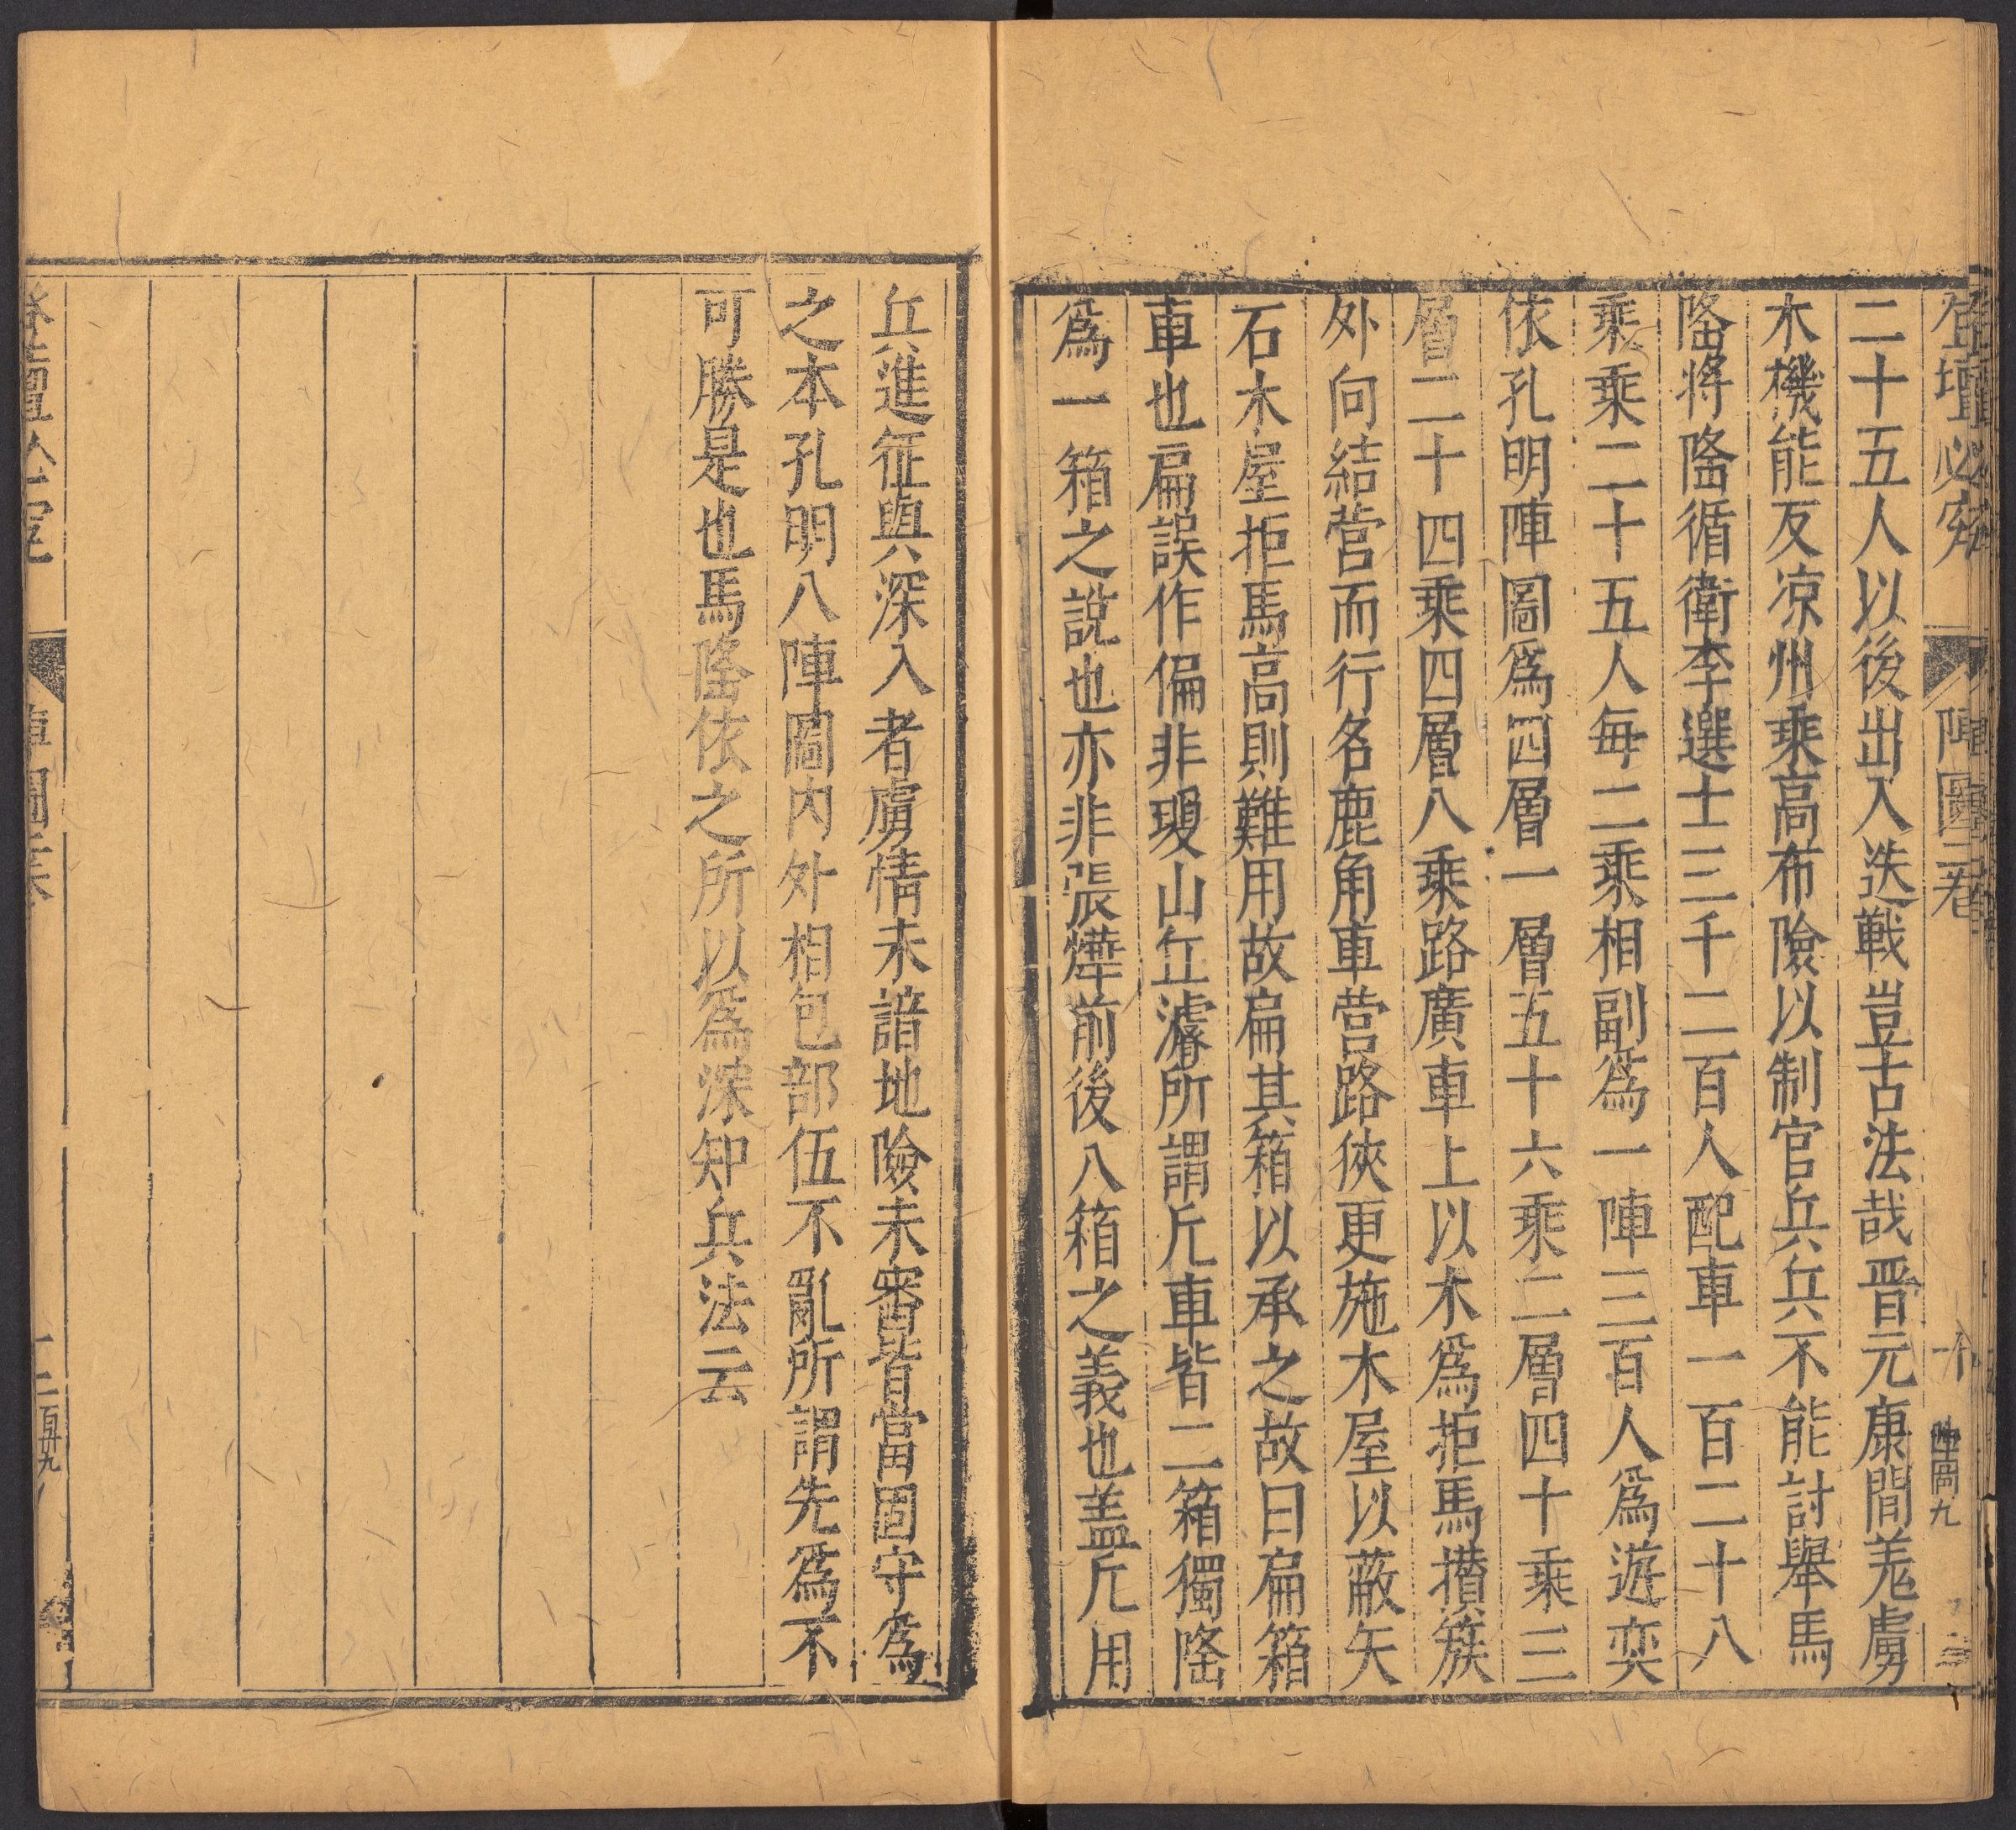 登壇必究
陣圖三卷
陣圖九
二十五人以後出入迭戰豈古法哉晋元康間羌虜
木機能反凉州乘高布險以制官兵兵不能討舉馬
隆將隆循衛李選士三千二百人配車一百二十八
乘乘二十五人每二乘相副爲一陣三百人爲遊奕
依孔明陣圖爲四層一層五十六乘二層四十乘三
層二十四乘四層八乘路廣車上以木爲拒馬攅簇
外向結营而行名鹿角車营路狹更施木屋以蔽矢
石木屋拒馬高則難用故扁其箱以承之故曰扁箱
車也扁誤作偏非瓊山丘濬所謂凡車皆二箱獨隆
爲一箱之說也亦非張燁前後八箱之義也盖凡用
兵進征與深入者虜情未諳地險未審皆當固守爲
之本孔明八陣圖内外相包部伍不亂所謂先爲不
可勝是也馬隆依之所以爲深知兵法云